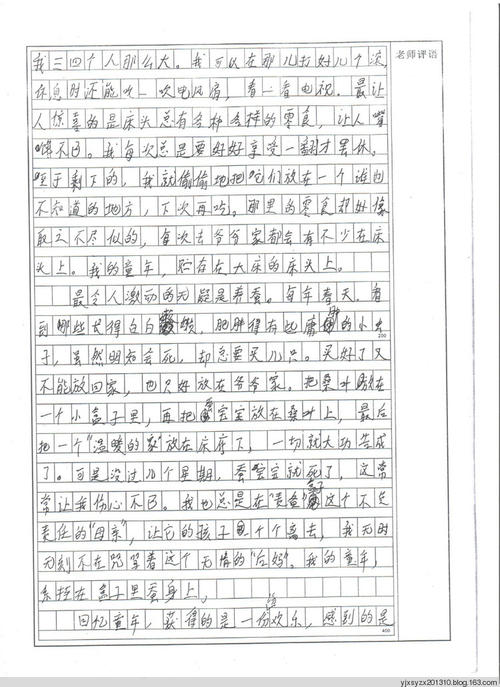 老师评语
我三四个人那么大。我可以在那儿打好几个滚,
休息时还能吹一吹电风扇,看一看电视。最让
人惊喜的是床头总有各种各样的零食,让人嘴
馋不已。我每次总是要好好享受一翻才罢休。
至于剩下的,我就偷偷地把它们放在一个谁也
不知道的地方,下次再吃。那里的零食却好像
取之不尽似的,每次去爷爷家都会有不少在床
头上。我的童年,贮存在大床的床头上。
最令人激动的无疑是养蚕。每年春天,看
到哪些长得白白嫩嫩,肥肥得有些庸肿的小虫
子,虽然明知会死,却总要买几只。买好了又
不能放回家,也只好放在爷爷家。把桑叶放在
一个小盒子里,再把蚕宝宝放在桑叶上,最后
把一个“温暖的家”放在床底下,一切就大功告成
了。可是没过几个星期,蚕宝宝就死了,这常
常让我伤心不已。我也总是在“责备”这个不负
责任的“母亲”,让它的孩子一个个离去,我无时
无刻不在咒骂着这个无情的“后妈”。我的童年,
系挂在盒子里蚕身上。
200
回忆童年,获得的是一份欢乐,感到的是
400
yjxsyzx201310.blog.163.com